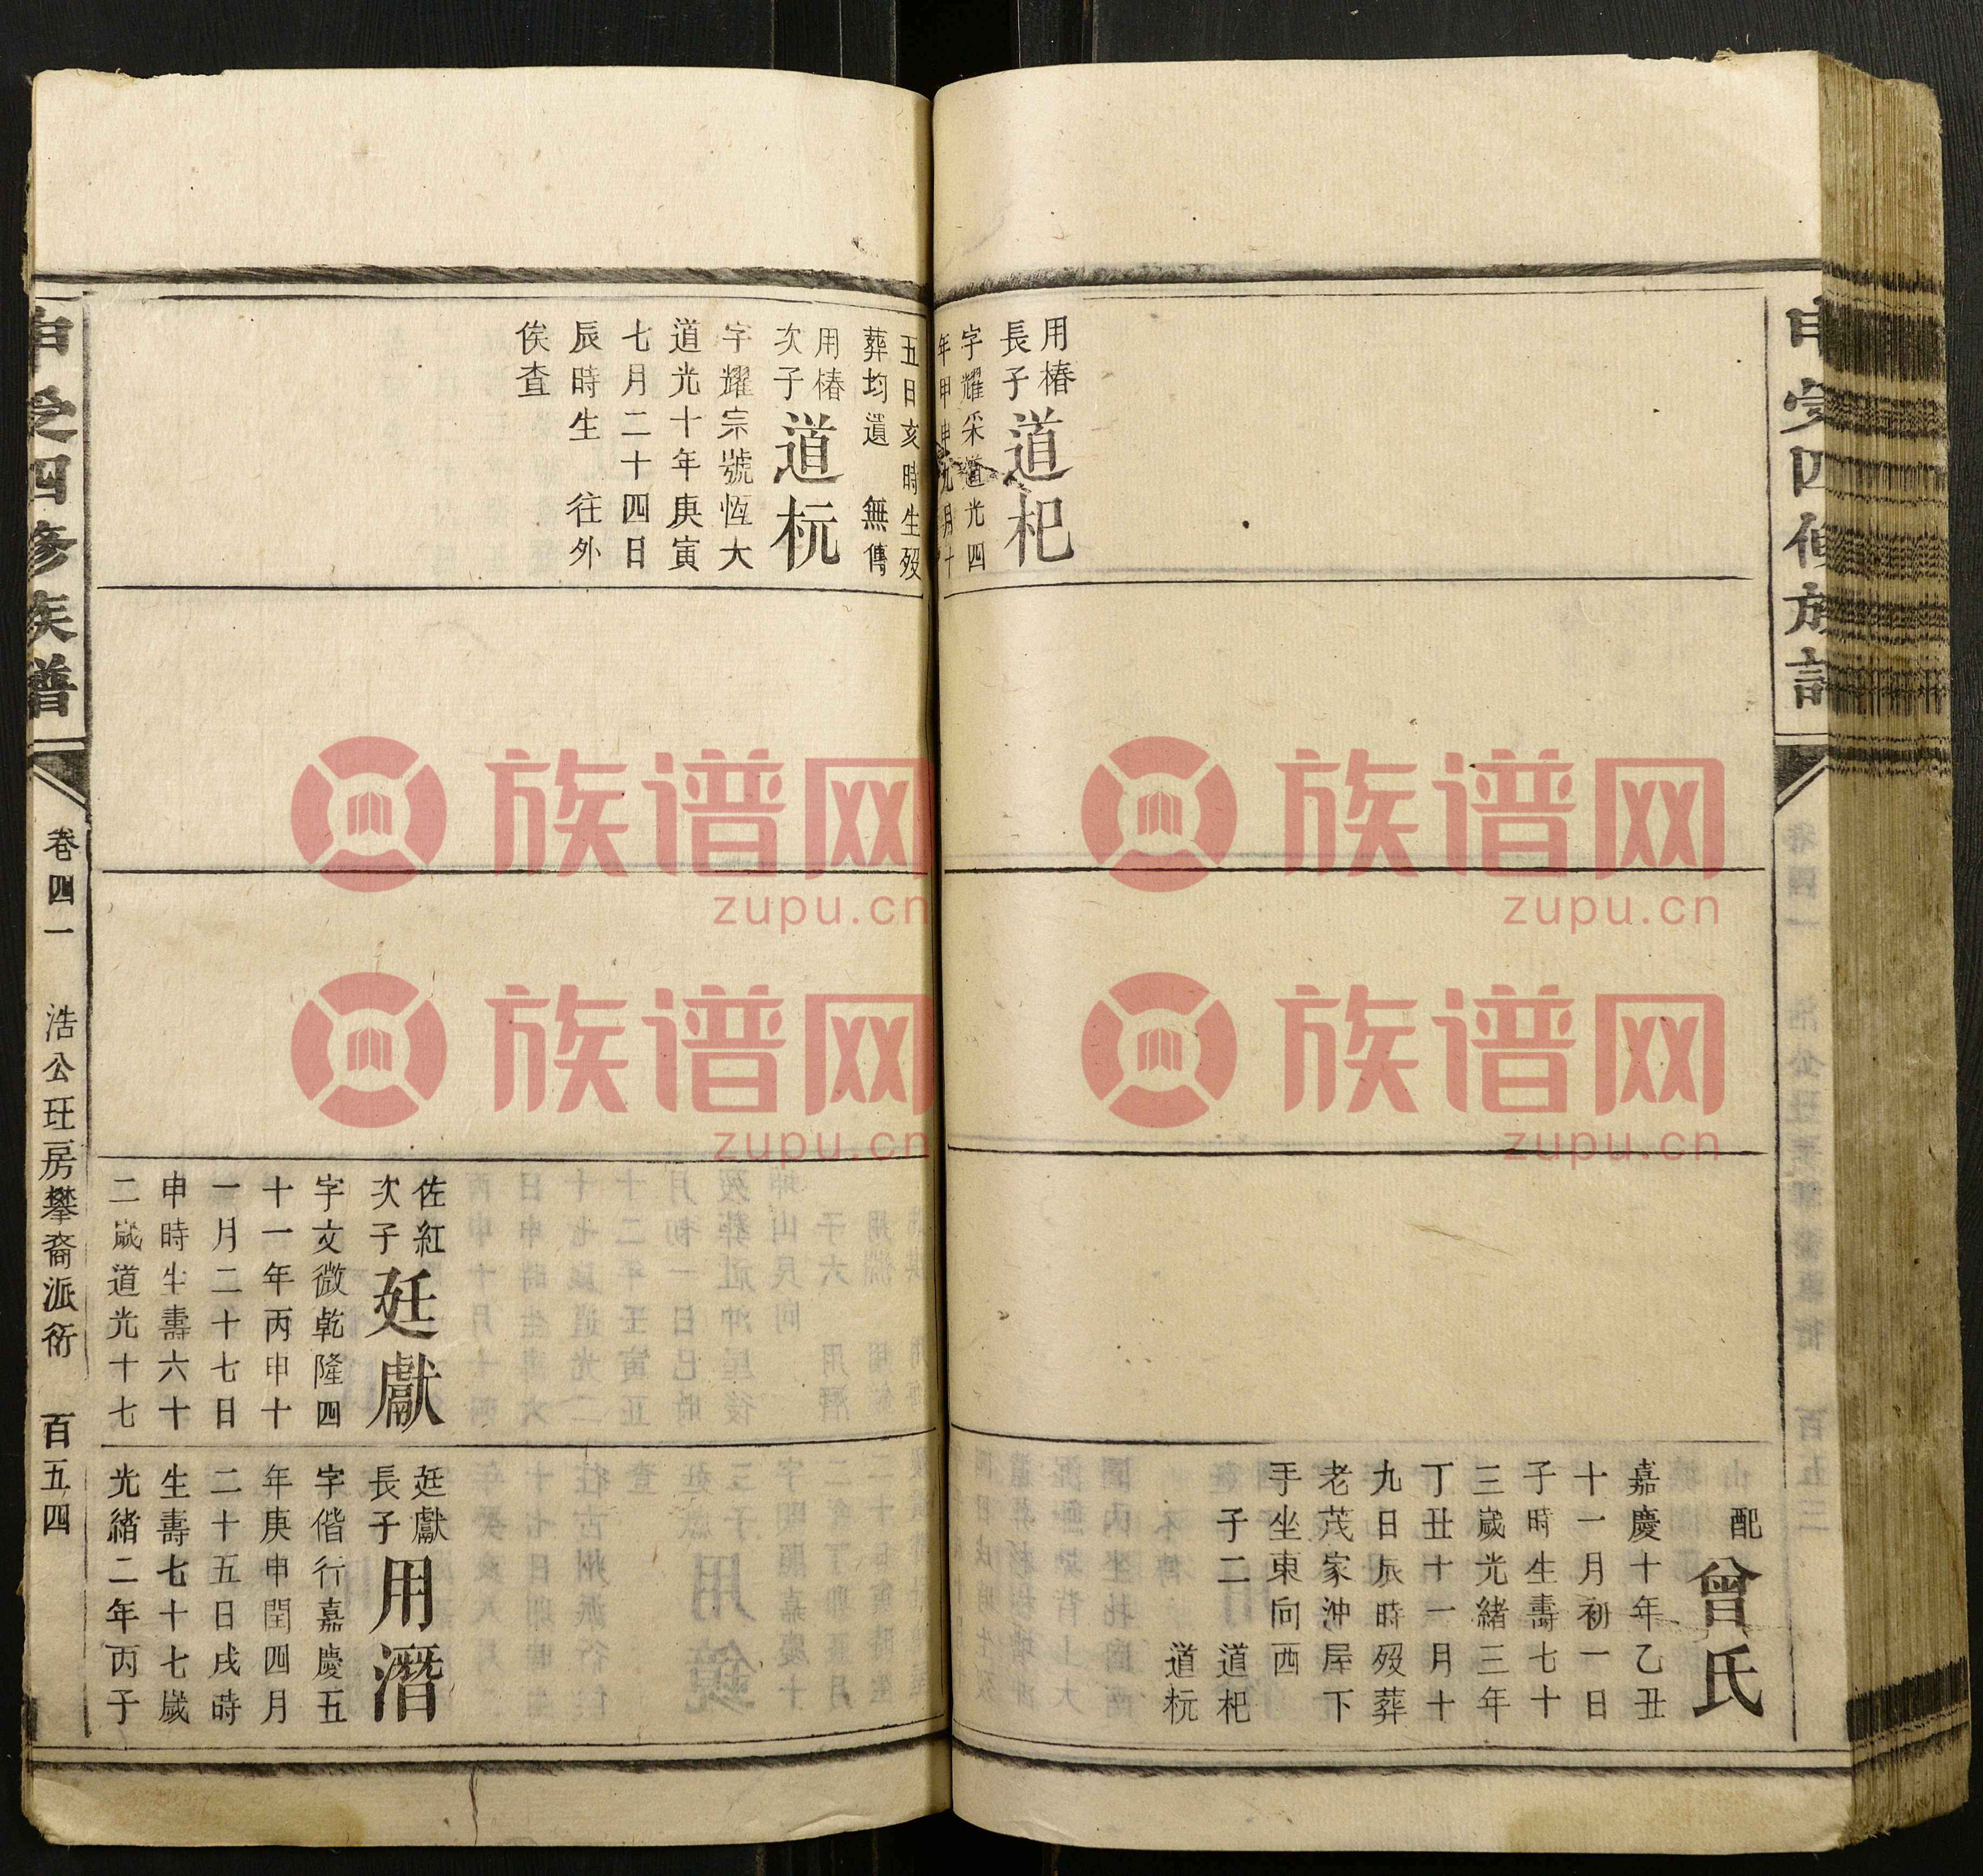 配
曾氏
嘉慶十年乙丑
十一月初一日
子時生壽七十
三歲光緒三年
丁丑十一月十
九日辰時歿葬
老茂家沖屋下
手坐東向西
子二 道杞
道杬
用椿
長子
道杞
字耀采道光四
年甲申九月十
五日亥時生歿
葬均遺 無傳
用椿
次子
道杬
字耀宗號恆大
道光十年庚寅
七月二十四日
辰時生 往外
俟查
佐紅
次子
廷獻
字文微乾隆四
十一年丙申十
一月二十七日
申時生壽六十
二歲道光十七
廷獻
長子
用潛
字偕行嘉慶五
年庚申閏四月
二十五日戌時
生壽七十七歲
光緒二年丙子
四修族譜
卷四一
浩公玨房攀裔派衍
百五四
族谱网
zupu.cn
族谱网
zupu.cn
族谱网
zupu.cn
族谱网
zupu.cn